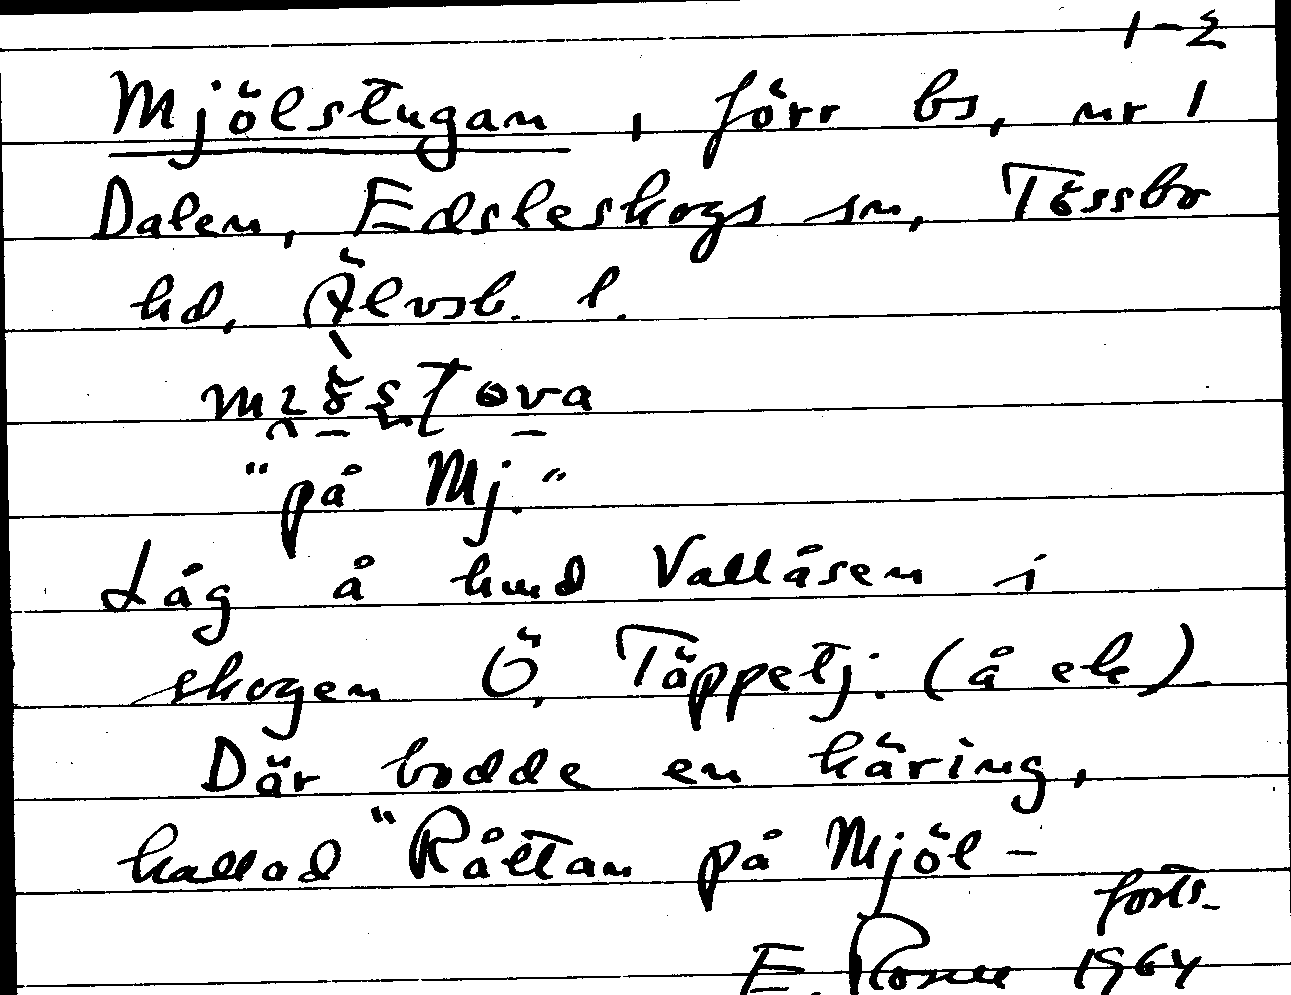 1-2
Mjölstugan, förr bs, nr 1
Dalen, Edsleskogs sn, Tössbo
hd, Älvsb. l.
"på Mj."
Låg å hmd Vallåsen i
skogen Ö, Täppetj. (å ek)
Där bodde en käring,
kallad "Råttan på Mjöl-
forts.
E. 1964